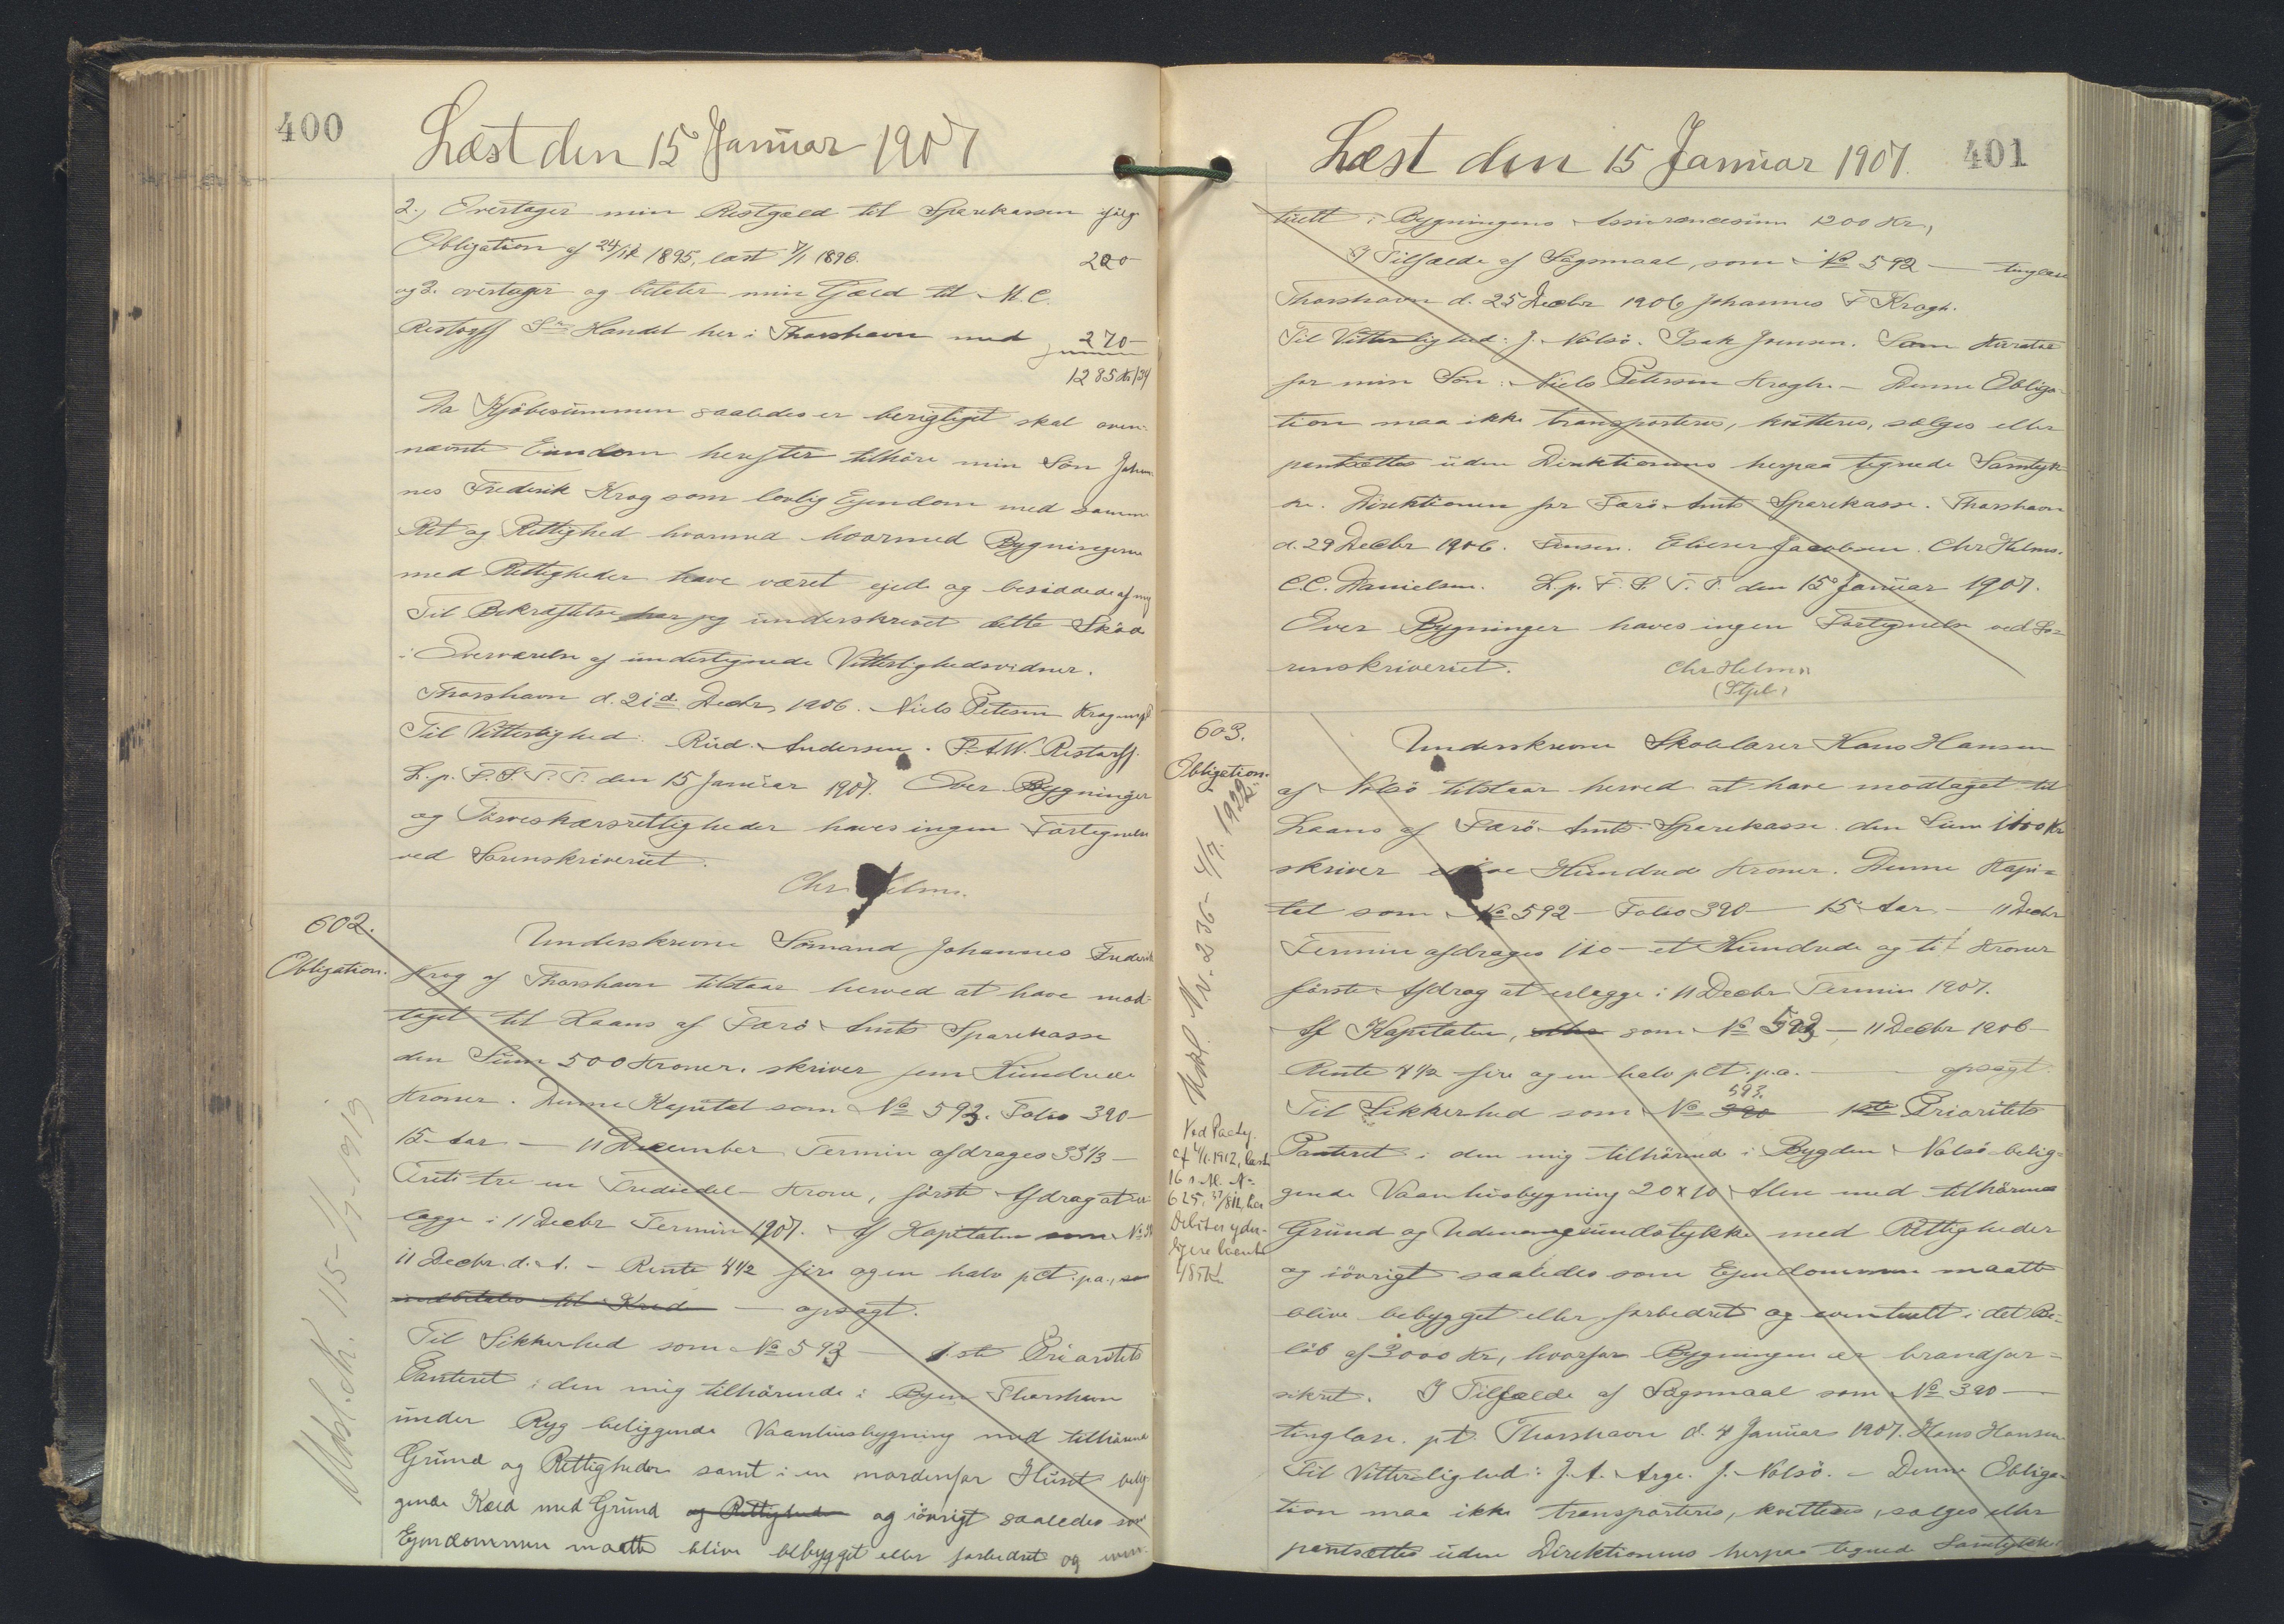 400
Læst den 15 Januar 1907
2., Overtager min Restgæld til Sparekassen ifølg
Obligation af 24/12 1895, læst 7/1 1896. 200
og 3. overtager og betaler min Gjæld til M. C.
Restorff Sn Handel her i Thorshavn med 270-
1285 Kr 34
Da Kjöbesummen saaledes er berigtiget skal oven-
nævnte Eiendom herefter tilhöre min Sön Johan-
nes Frederik Krog som lovlig Ejendom med samme
Ret og Rettighed hvormed hvormed Bygningerne
med Rettigheder have været ejede og besiddede af mig
Til Bekræftelse har jeg underskrevet dette Sköde
i Overværelse af undertegnede Vitterlighedsvidner.
Thorshavn d. 21d. Decbr, 1906. Niels Petersen Krog
Til Vitterlighed. Rud. Andersen. P. A. W. Restorff.
L. p. F. S. T. T. den 15 Januar 1907. Over Bygninger
og Törveskærsrettigheder haves ingen Fortegnelse
ved Sorenskriveriet.
Chr Helms.
602.
Obligation.
Underskrevne Sömand Johannes Frederik
Krog af Thorshavn tilstaar herved at have mod-
taget til Laans af Færö Amts Sparekasse
den Sum 500 Kroner. skriver fem Hundrede
Kroner. Denne Kapital som No 593. Folio 390-
15 Aar - 11 December Termin afdrages 33 1/3 -
Treti tre en Trediedel Krone, förste Afdrag at er-
lægge i 11 Decbr Termin 1907. Af Kapitalen som No
11 Decbr d. A. - Rente 4 1/2 fire og en halv pCt. p.a.,
indbetales til Kred - opsagt.
Til Sikkerhed som No 593 - 1.ste Prioritets
Panteret i den mig tilhörende i Byen Thorshavn
under Ryg beliggende Vaanhusbygning med tilhörende
Grund og Rettigheder samt i en nordenfor Huset belig-
gende Kæld med Grund og Rettigheder og iövrigt saaledes som
Ejendommen maatte blive bebygget eller forbedret og even-
Udsl. cfr. 115-1/7-1919
401
Læst den 15 Januar 1907.
tuelt i Bygningens Assurancesum 1200 Kr,
I Tilfælde af Sögsmaal, som No 592 - tinglæse
Thorshavn d. 25 Decbr 1906 Johannes F Krogh.
Til Vitterlighed: J. Nolsö. Isak Joensen. Som Kurator
for min Sön: Niels Petersen Krogh. - Denne Obliga-
tion maa ikke transporteres, kvitteres, sælges eller
pantsættes uden Direktionens herpaa tegnede Samtyk-
ke. Direktionen for Færö Amts Sparekasse. Thorshavn
d. 29 Decbr 1906. Jensen. Elieser Jacobsen. Chr Helms.
C. C. Danielsen. L. p. F. S. T. T. den 15 Januar 1907.
Over Bygninger haves ingen Fortegnelse ved So-
renskriveriet.
Chr Helms
(Stpl.)
603.
Obligation.
Underskrevne Skolelærer Hans Hansen
af Nolsö tilstaar herved at have modtaget til
Laans af Færö Amts Sparekasse den Sum 1100 Kr
skriver elleve Hundred Kroner. Denne Kapi-
tal som No 592 - Folio 390 - 15 Aar - 11 Decbr
Termin afdrages 110 - et Hundrede og ti Kroner
förste Afdrag at erlægge i 11 Decbr Termin 1907.
Af Kapitalen, som No 593 - 11 Decbr 1906 -
Rente 4 1/2 fire og en halv pCt. p.a. - opsagt.
Til Sikkerhed som No 390 593. 1ste Prioritets
Panteret i den mig tilhörende i Bygden Nolsö belig-
gende Vaanhusbygning 20 x 10 Alen med tilhörende
Grund og Udenomsgrundstykke med Rettigheder
og iövrigt saaledes som Ejendommen maatte
blive bebygget eller forbedret og eventuelt i det Be-
löb af 3000 Kr, hvorfor Bygningen er brandfor-
sikret. I Tilfælde af Sögsmaal som No 390 -
tinglæse. pt. Thorshavn d. 4 Januar 1907. Hans Hansen
Til Vitterlighed: J. A. Arge. J. Nolsö. - Denne Obliga-
tion maa ikke transporteres, kvitteres, sælges eller
pantsættes uden Direktionens herpaa tegnede Samtykke
Udsl. Nr. 236 - 4/7. 1922.
Ved Paateg.
af 4/1 1912, læst
16 s. M. No
625, har
Debitor yder-
ligere laant
485 Kr